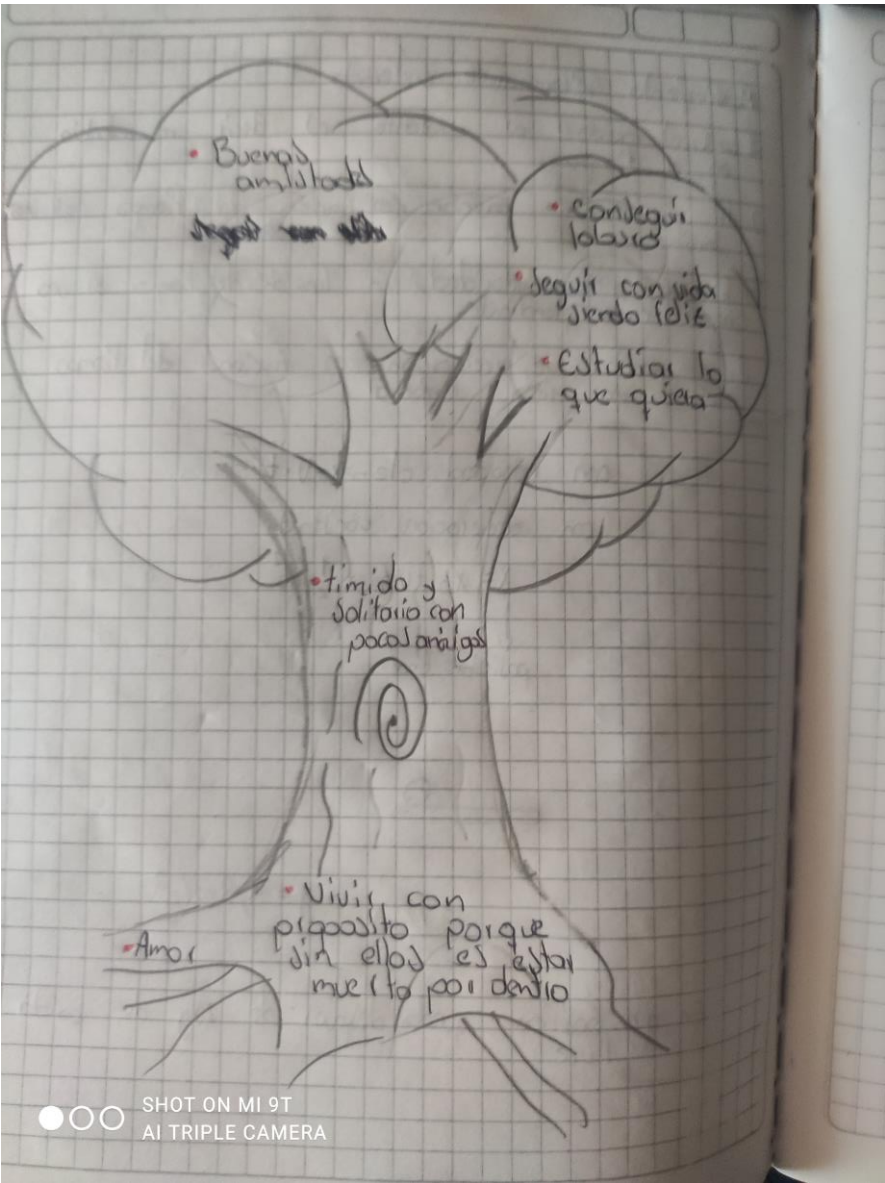 • Buenas
amistades
• Conseguir
• Seguir con vida
siendo feliz
• Estudiar lo
que quiera
• timido y
solitario con
pocos amigos
• Vivir con
proposito porque
sin ellos es estar
muerto por dentro
• Amor
SHOT ON MI 9T
AI TRIPLE CAMERA